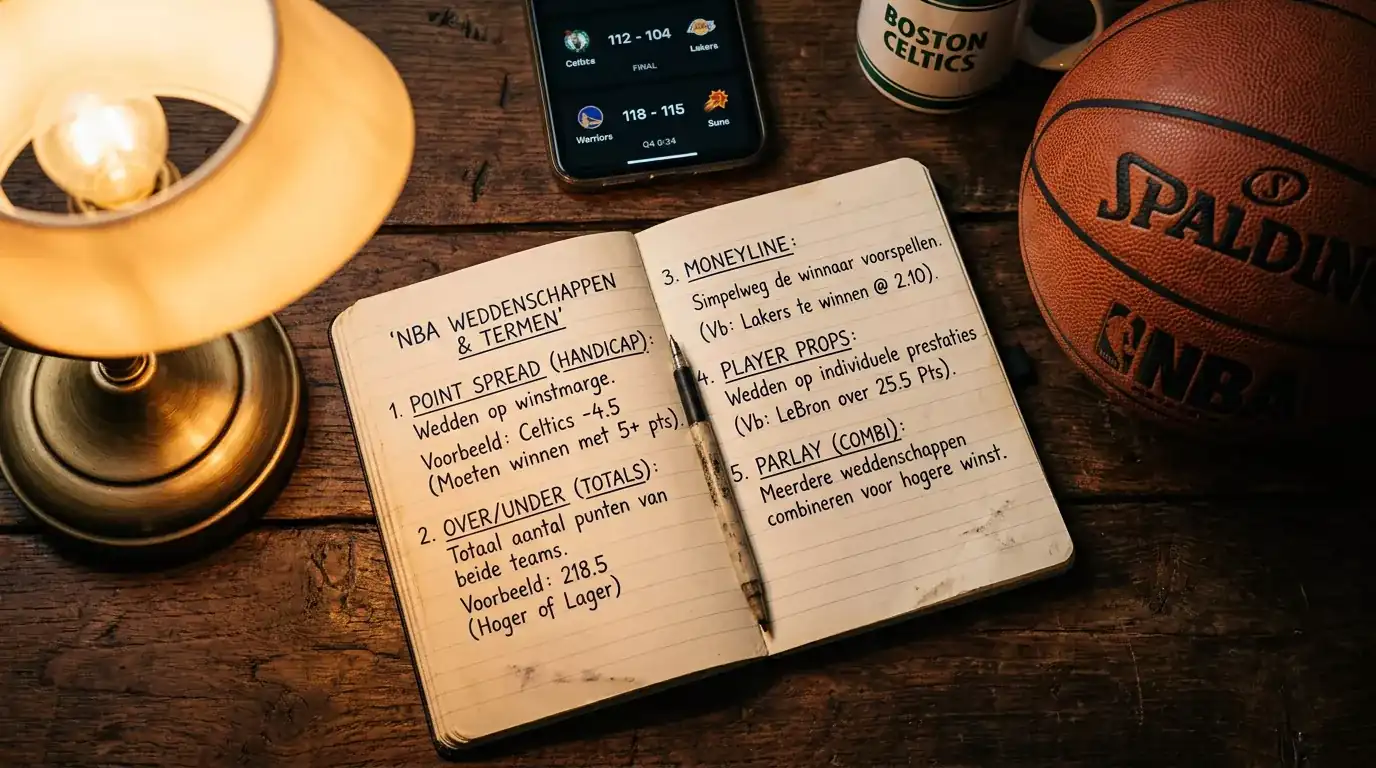 112 - 104
Celtbs
Lakers
FINAL
118 - 115
Warriors
Suns
Q4 0:34
BOSTON
CELTICS
SPALDING
NBA
'NBA WEDDENSCHAPPEN
& TERMEN'
1. POINT SPREAD (HANDICAP):
Wedden op winstmarge.
Voorbeeld: Celtics -4.5
(Moeten winnen met 5+ pts).
2. OVER/UNDER (TOTALS):
Totaal aantal punten van
beide teams.
Voorbeeld: 218.5
(Hoger of Lager)
3. MONEYLINE:
Simpelweg de winnaar voorspellen.
(Vb: Lakers te winnen @ 2.10).
4. PLAYER PROPS:
Wedden op individuele prestaties
(Vb: LeBron over 25.5 Pts).
5. PARLAY (COMBI):
Meerdere weddenschappen
combineren voor hogere winst.